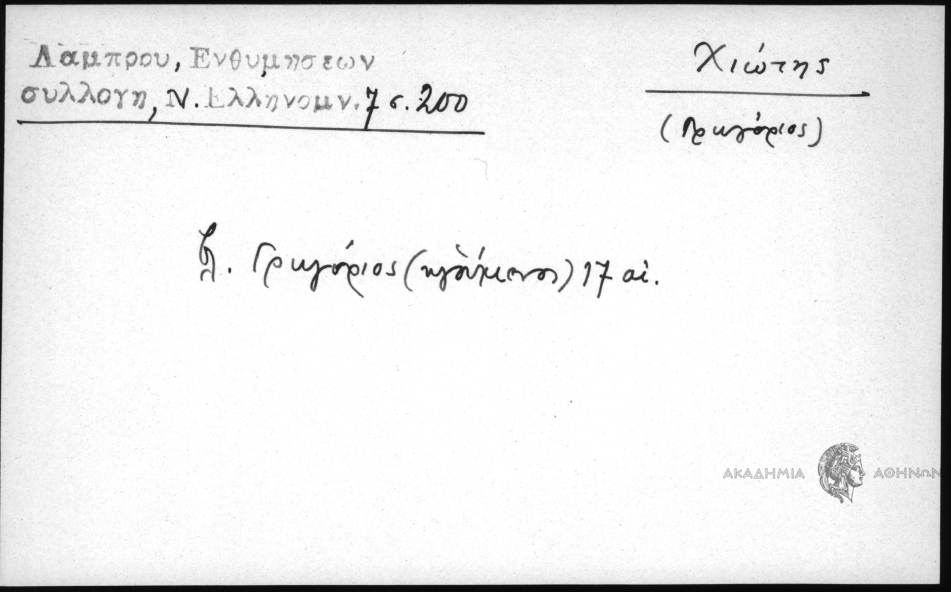 Λαμπρου, Ενθυμησεων
συλλογη, Ν. Ελληνομν. 7 σ. 200
Χιώτης
(Γρηγόριος)
βλ. Γρηγόριος (ηγούμενος) 17 αἰ.
ΑΚΑΔΗΜΙΑ ΑΘΗΝΩΝ